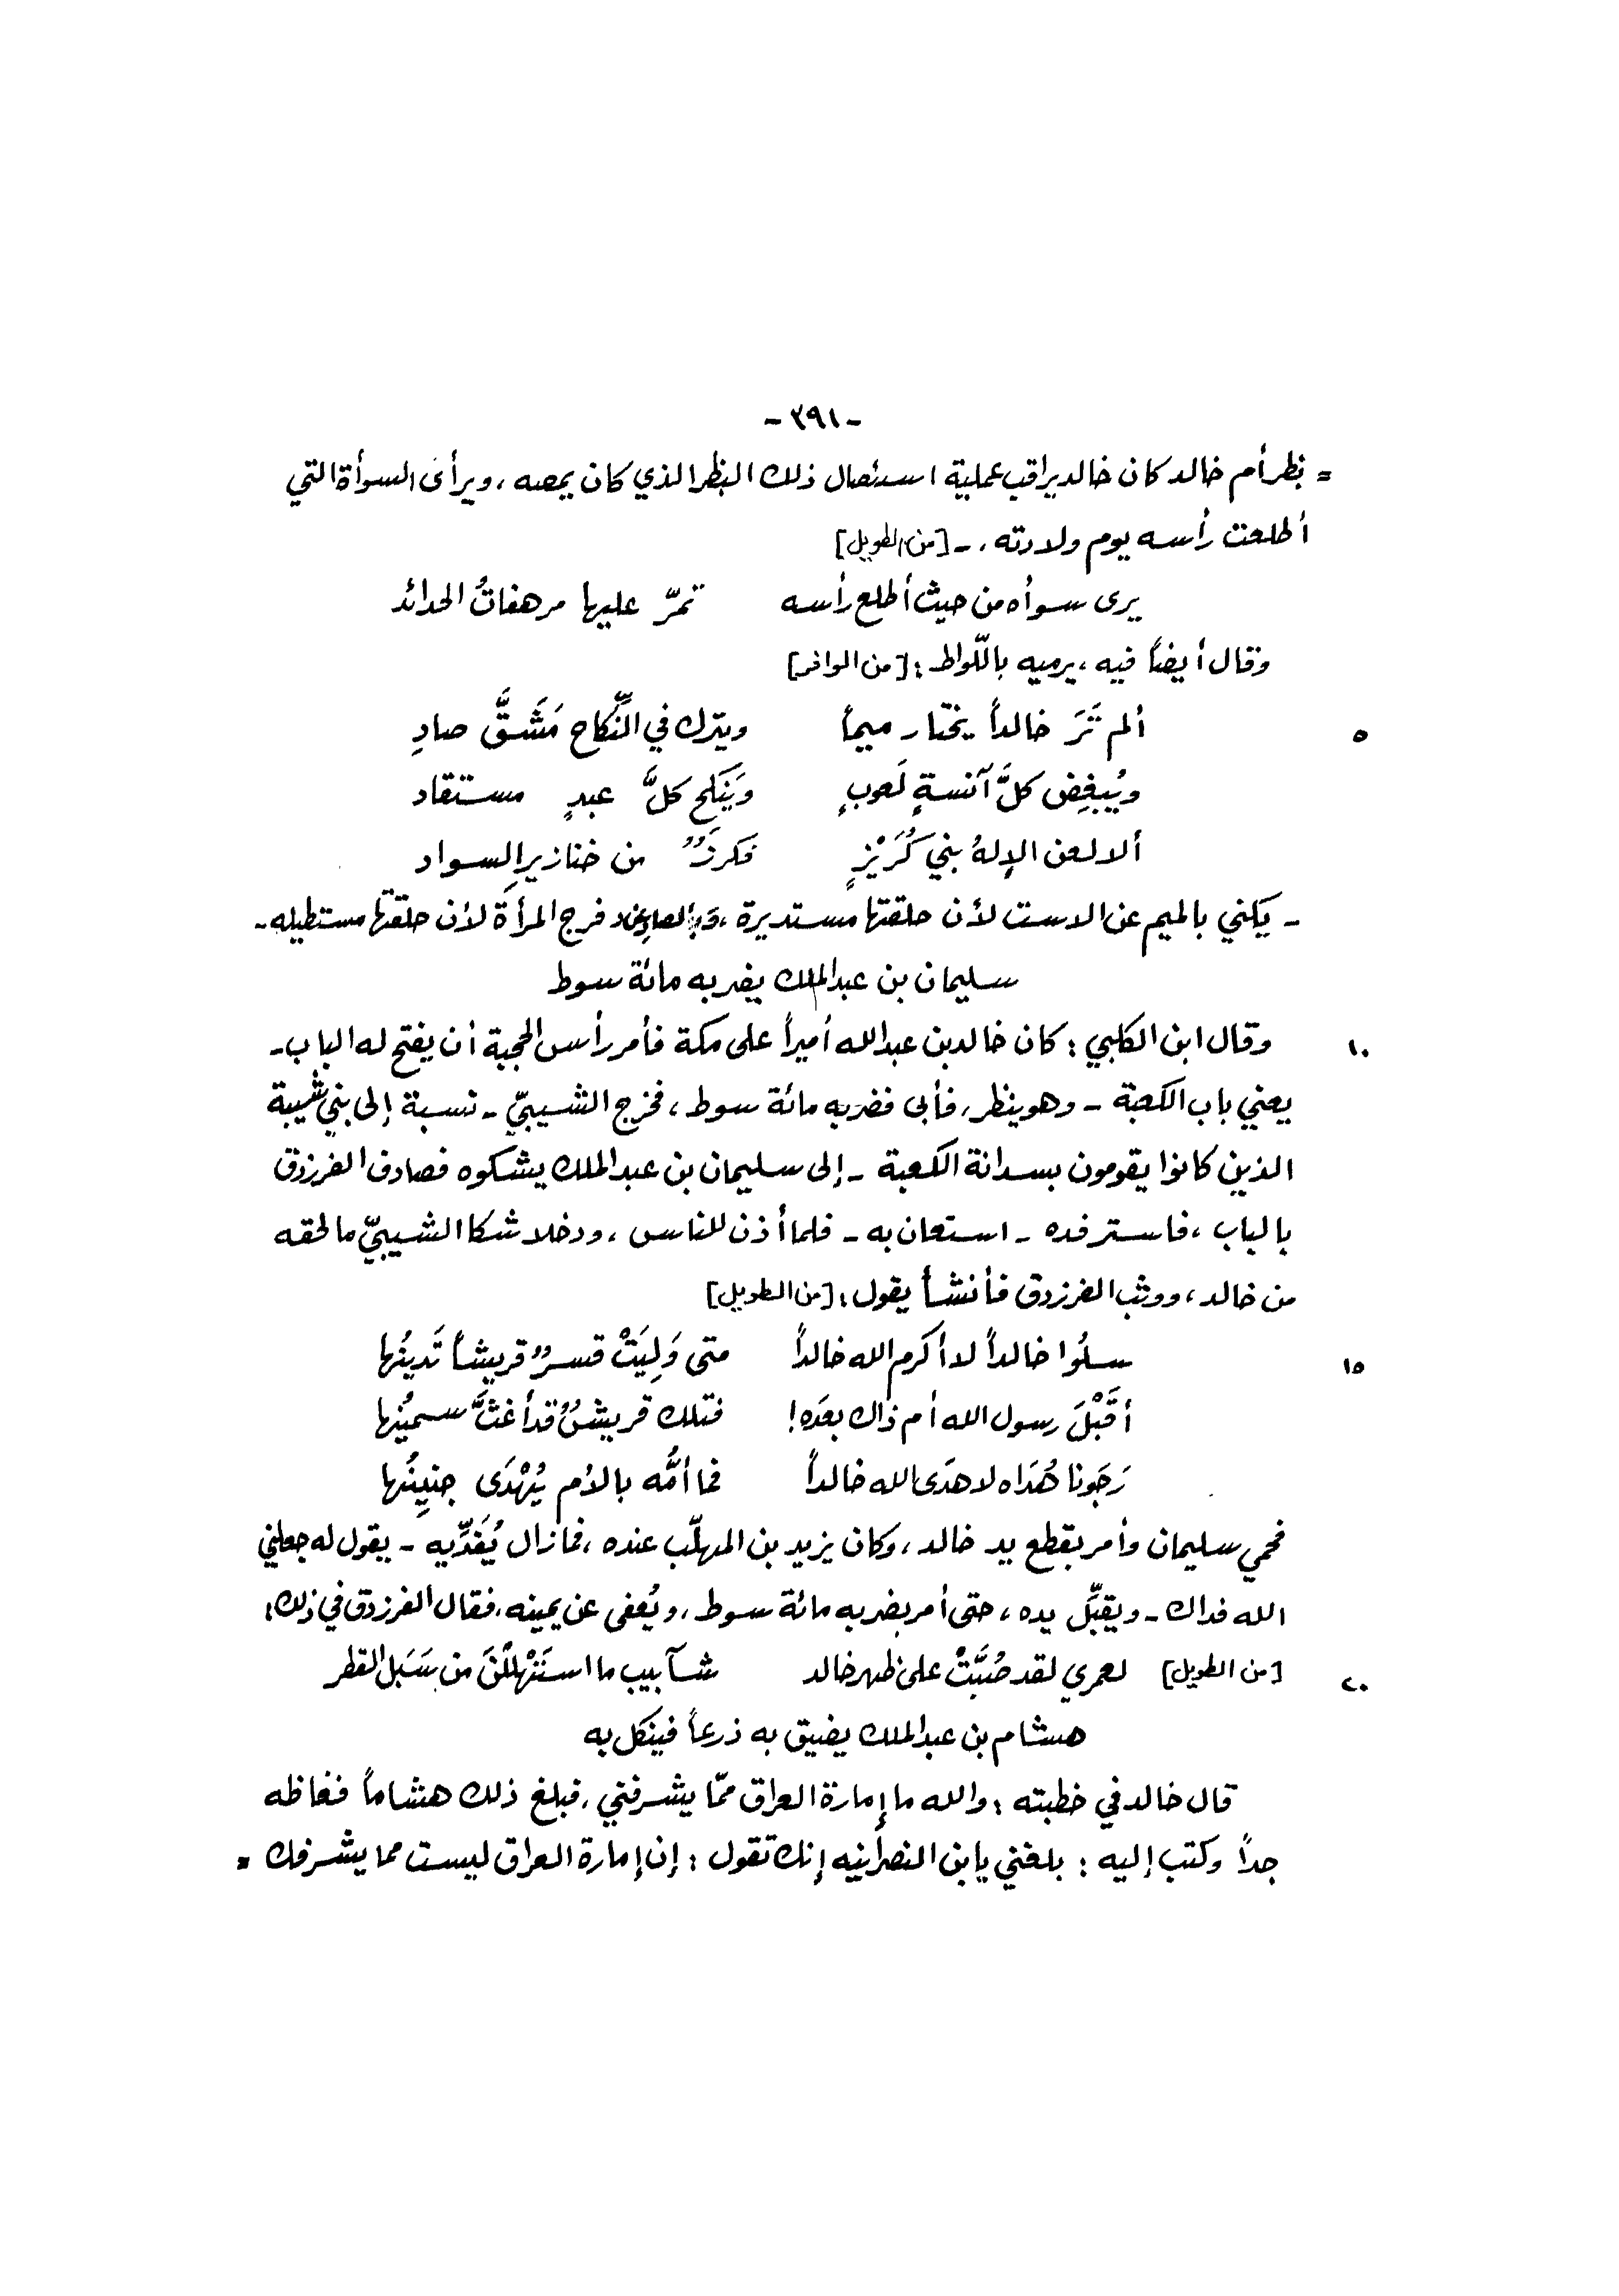 -٣٩١-
= بظر أم خالد كان خالد يراقب عملية استئصال ذلك البظر الذي كان يمصه ، ويرأى السوأة التي
أطلعت رأسه يوم ولادته . - [من الطويل]
يرى سوأه من حيث أطلع رأسه تمرّ عليها مرهفاتُ الحدائد
وقال أيضاً فيه ، يرميه باللّواط : [من الوافر]
ألم تَرَ خالداً يختار ميماً ويترك في النِّكاح مَشَقَّ صادِ ٥
ويُبغِض كلَّ آنسةٍ لَعوبٍ وَيَنكح كلَّ عبدٍ مستقاد
ألا لعن الإلهُ بني كُرَيْزٍ فكرزٌ من خنازيرِ السواد
- يكني بالميم عن الاست لأن حلقتها مستديرة ، وبالصاد فرج المرأة لأن حلقتها مستطيله -
سليمان بن عبد الملك يضربه مائة سوط
وقال ابن الكلبي : كان خالد بن عبد الله أميراً على مكة فأمر رأس الحجبة أن يفتح له الباب - ١٠
يعني باب الكعبة - وهو ينظر ، فأبى فضربه مائة سوط ، فخرج الشيبيّ - نسبة إلى بني شيبة
الذين كانوا يقومون بسدانة الكعبة - إلى سليمان بن عبد الملك يشكوه فصادف الفرزدق
بالباب ، فاسترفده - استعان به - فلما أذن للناس ، ودخلا شكا الشيبيّ ما لحقه
من خالد ، ووثب الفرزدق فأنشأ يقول : [من الطويل]
سلُوا خالداً لا أكرم الله خالداً متى وَلِيَتْ قسرٌ قريشاً تَدينُها ١٥
أقَبْلَ رسول الله أم ذاك بعَده ! فتلك قريشٌ قد أغثَّ سمينُها
رَجَونا هُدَاه لا هدَى الله خالداً فما أمُّه بالأم يُهْدَى جنينُها
فحمي سليمان وأمر بقطع يد خالد ، وكان يزيد بن المهلّب عنده ، فما زال يُفَدِّيه - يقول له جعلني
الله فداك - ويقبِّل يده ، حتى أمر بضربه مائة سوط ، ويُعفى عن يمينه ، فقال الفرزدق في ذلك :
[من الطويل] لعمري لقد صُبَّتْ على ظهر خالد شآبيب ما استَهْلَلْنَ من سَبَل القطر ٢٠
هشام بن عبد الملك يضيق به ذرعاً فينكل به
قال خالد في خطبته : والله ما إمارة العراق ممّا يشرفني ، فبلغ ذلك هشاماً فغاظه
جداً وكتب إليه : بلغني يا بن النصرانيه إنك تقول : إن إمارة العراق ليست مما يشرفك =